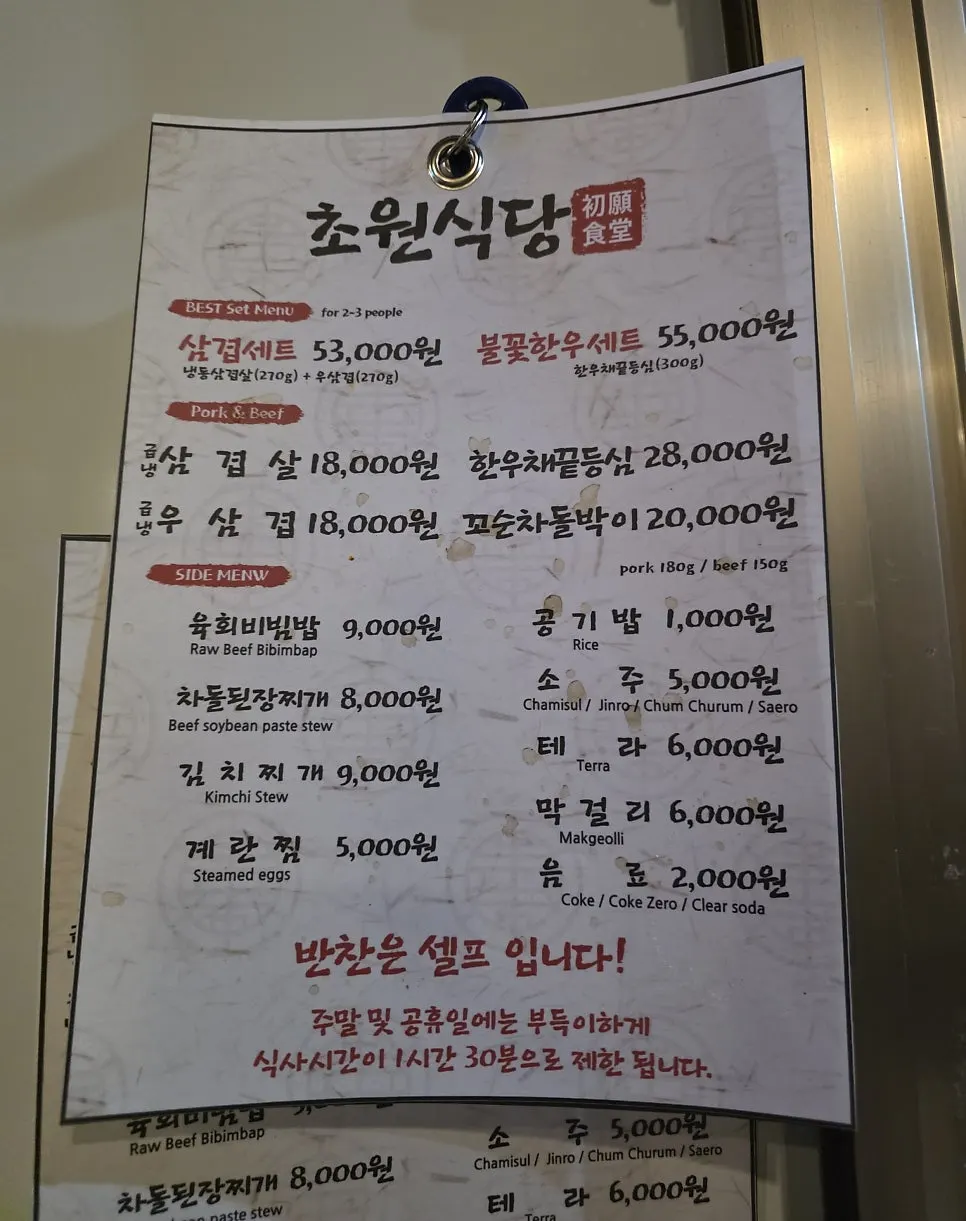 초원식당 初願
食堂
BEST Set Menu for 2-3 people
삼겹세트 53,000원 불꽃한우세트 55,000원
냉동삼겹살(270g) + 우삼겹(270g) 한우채끝등심(300g)
Pork & Beef
급냉 삼 겹 살 18,000원 한우채끝등심 28,000원
급냉 우 삼 겹 18,000원 꼬순차돌박이 20,000원
pork 180g / beef 150g
SIDE MENW
육회비빔밥 9,000원 공 기 밥 1,000원
Raw Beef Bibimbap Rice
차돌된장찌개 8,000원 소 주 5,000원
Beef soybean paste stew Chamisul / Jinro / Chum Churum / Saero
김 치 찌 개 9,000원 테 라 6,000원
Kimchi Stew Terra
계 란 찜 5,000원 막 걸 리 6,000원
Steamed eggs Makgeolli
음 료 2,000원
Coke / Coke Zero / Clear soda
반찬은 셀프 입니다!
주말 및 공휴일에는 부득이하게
식사시간이 1시간 30분으로 제한 됩니다.
육회비빔밥 소 주 5,000원
Raw Beef Bibimbap Chamisul / Jinro / Chum Churum / Saero
차돌된장찌개 8,000원 테 라 6,000원
paste stew Terra